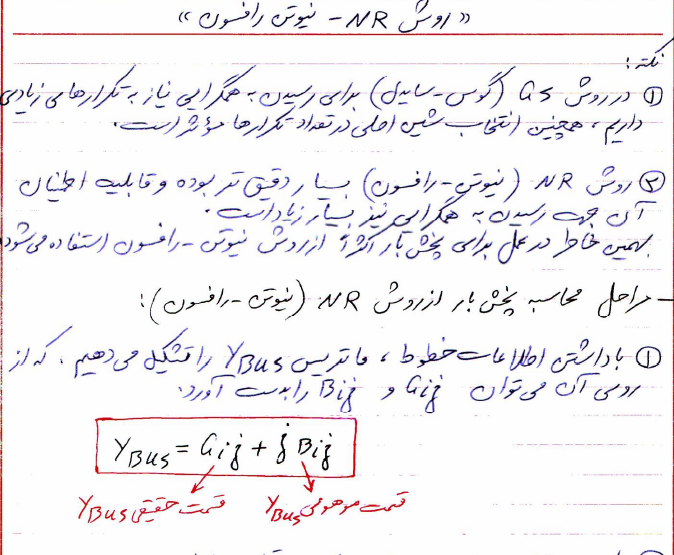 « روش NR - نیوتن رافسون »
نکته:
① در روش GS (گوس-سایدل) برای رسیدن به همگرایی نیاز به تکرارهای زیادی
داریم، همچنین انتخاب شین اصلی در تعداد تکرارها مؤثر است.
② روش NR (نیوتن-رافسون) بسیار دقیق تر بوده و قابلیت اطمینان
آن جهت رسیدن به همگرایی نیز بسیار زیاد است.
بهمین خاطر در عمل برای پخش بار اکثراً از روش نیوتن-رافسون استفاده می‌شود
- مراحل محاسبه پخش بار از روش NR (نیوتن-رافسون):
① با داشتن اطلاعات خطوط، ماتریس YBus را تشکیل می‌دهیم. که از
روی آن می‌توان Gij و Bij را بدست آورد.
YBus = Gij + j Bij
قسمت حقیقی YBus قسمت موهومی YBus